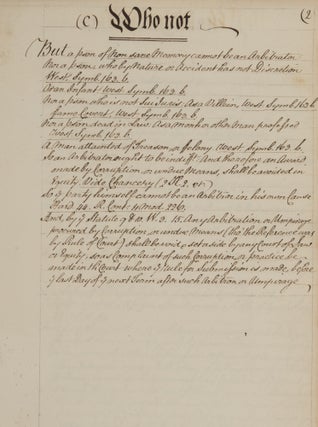 (C) Who not (2
But a pson of Non sane Memory cannot be an Arbitrator
Nor a pson, who by Nature or Accident has not Discretion
West. Symb. 163. b.
Or an Infant West. Symb. 163. b.
Nor a pson who is not Sui Juris, As a Villein, West. Symb. 163. b.
Feme Covert, West. Symb. 163. b.
Nor a pson dead in Law, As a Monk or other Man professed
West. Symb. 163. b.
A Man attainted of Treason, or Felony West. Symb. 163. b.
So an Arbitrator ought to be indiff.t And therefore an Award
made by Corruption, or undue Means, shall be avoided in
Equity Vide Chancery (2 K. 2. &c.)
So y Party himself cannot be an Arbitrator in his own Cause
Hard. 44. R. Cont. 4 Mod. 226.
And by y Statute 9 & 10 W. 3. 15. Any Arbitration or Umpirage
procured by Corruption, or undue Means (tho' the Reference was
by Rule of Court) shall be void, & set aside by any Court of Law
or Equity, so as Complaint of such Corruption, or practice be
made in th Court where y Rule for Submission is made, before
y last Day of y next Term after such Arbitrion or Umpirage